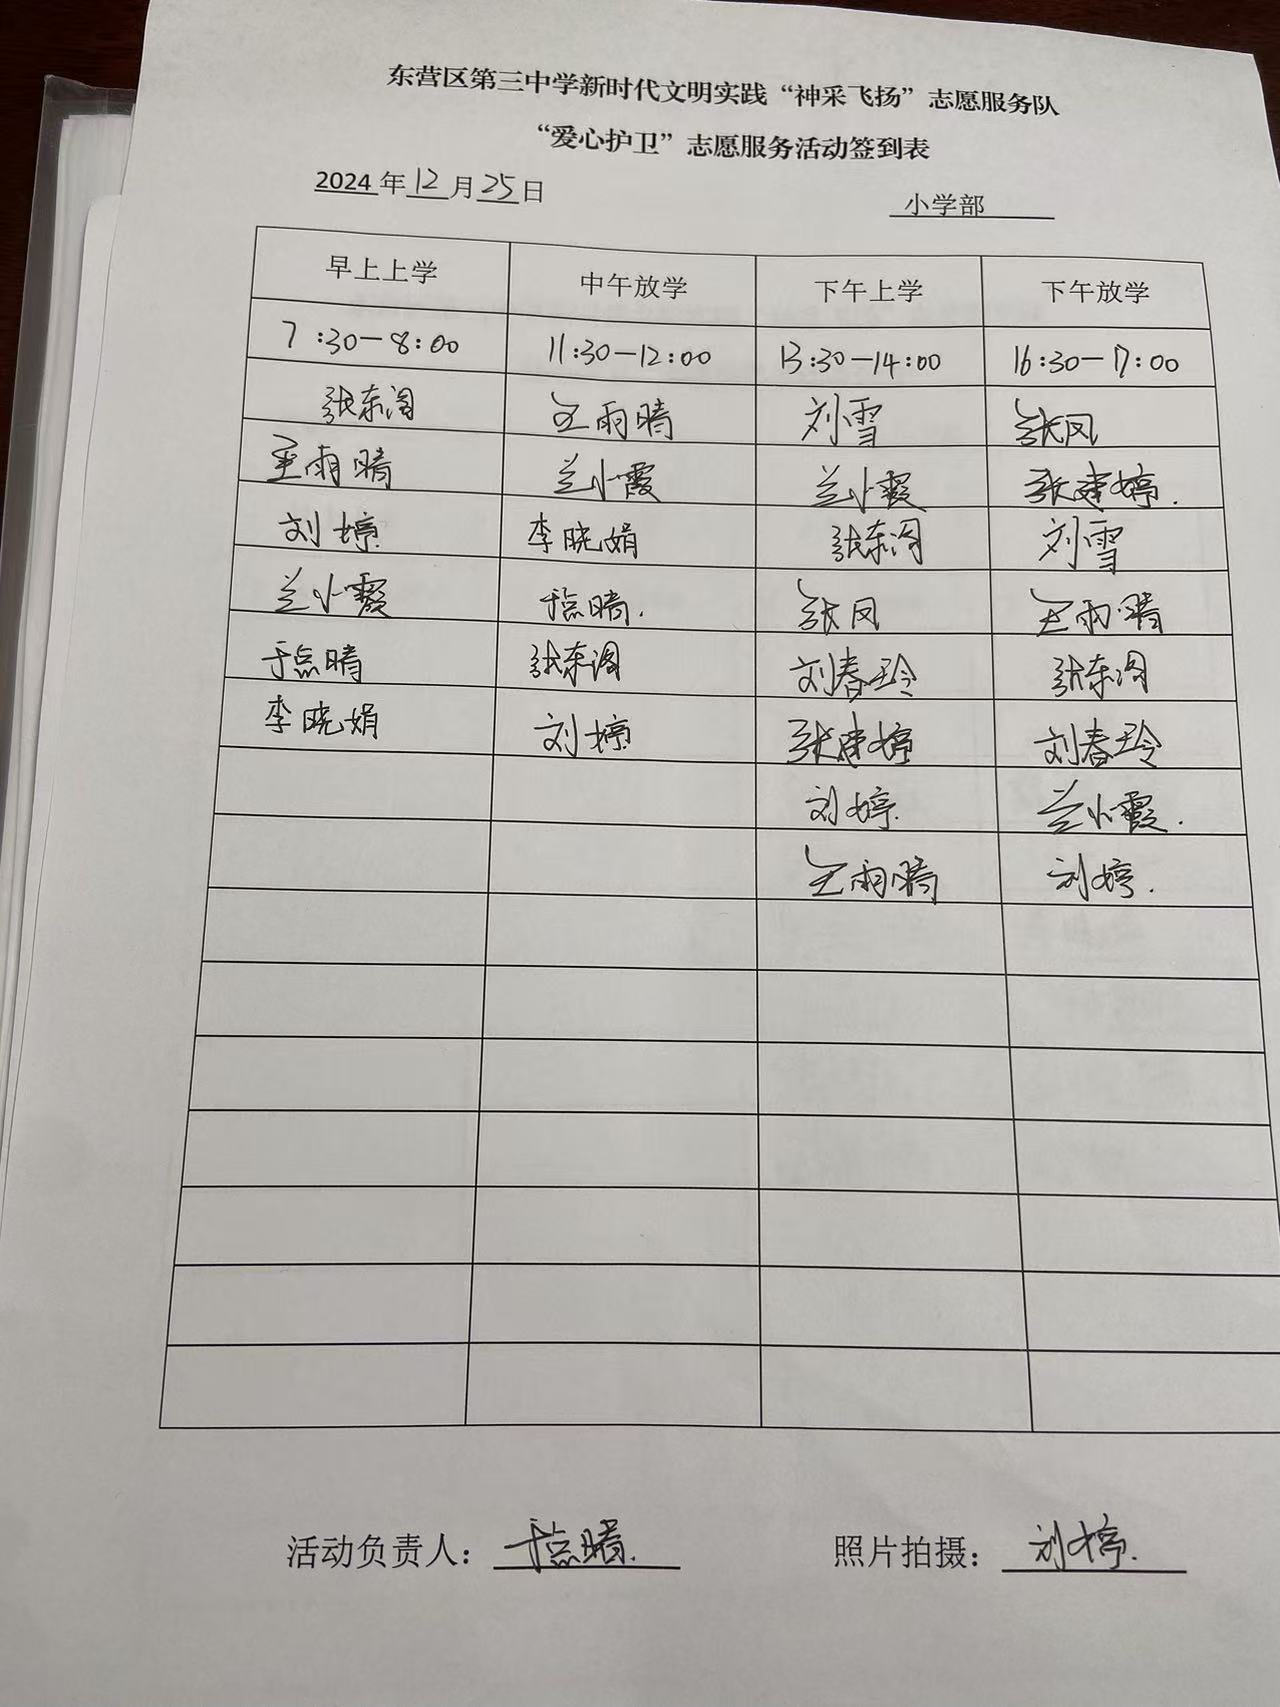 东营区第三中学新时代文明实践“神采飞扬”志愿服务队
“爱心护卫”志愿服务活动签到表
2024 年 12 月 25 日 小学部
早上上学 中午放学 下午上学 下午放学
7:30—8:00 11:30—12:00 13:30—14:00 16:30—17:00
张东 王雨晴 刘雪 张凤
王雨晴 兰小霞 兰小霞 张建婷.
刘婷 李晓娟 张东 刘雪
兰小霞 于点晴. 张凤 王雨晴
于点晴 张东 刘春玲 张东
李晓娟 刘婷 张建婷 刘春玲
刘婷 兰小霞.
王雨晴 刘婷.
活动负责人： 于点晴. 照片拍摄： 刘婷.